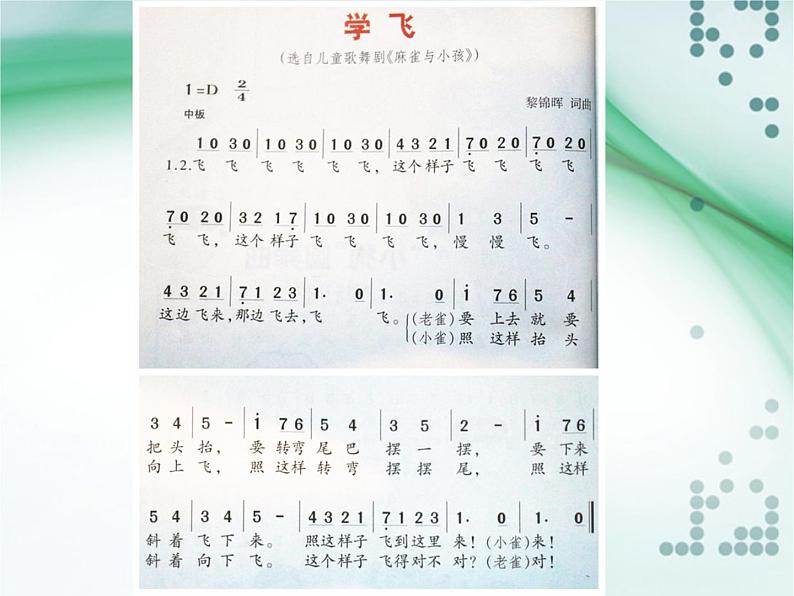 学 飞
(选自儿童歌舞剧《麻雀与小孩》)
1=D 2/4
中板
黎锦晖 词曲
1 0 3 0 | 1 0 3 0 | 1 0 3 0 | 4 3 2 1 | 7̣ 0 2 0 | 7̣ 0 2 0 |
1.2.飞 飞 飞 飞 飞 飞，这个样子 飞 飞 飞 飞
7̣ 0 2 0 | 3 2 1 7̣ | 1 0 3 0 | 1 0 3 0 | 1 3 | 5 - |
飞 飞，这个 样子 飞 飞 飞 飞，慢 慢 飞。
4 3 2 1 | 7̣ 1 2 3 | 1· 0 | 1· 0 | i 7 6 | 5 4 |
这边 飞来，那边 飞去，飞 飞。(老雀)要 上去 就 要
(小雀)照 这样 抬 头
3 4 | 5 - | i 7 6 | 5 4 | 3 5 | 2 - | i 7 6 |
把 头 抬， 要 转弯 尾 巴 摆 一 摆， 要 下来
向 上 飞， 照 这样 转 弯 摆 摆 尾， 照 这样
5 4 | 3 4 | 5 - | 4 3 2 1 | 7̣ 1 2 3 | 1· 0 | 1· 0 ‖
斜 着 飞 下 来。 照这样子 飞到这里 来！(小雀)来！
斜 着 向 下 飞。 这个样子 飞得对不 对？(老雀)对！